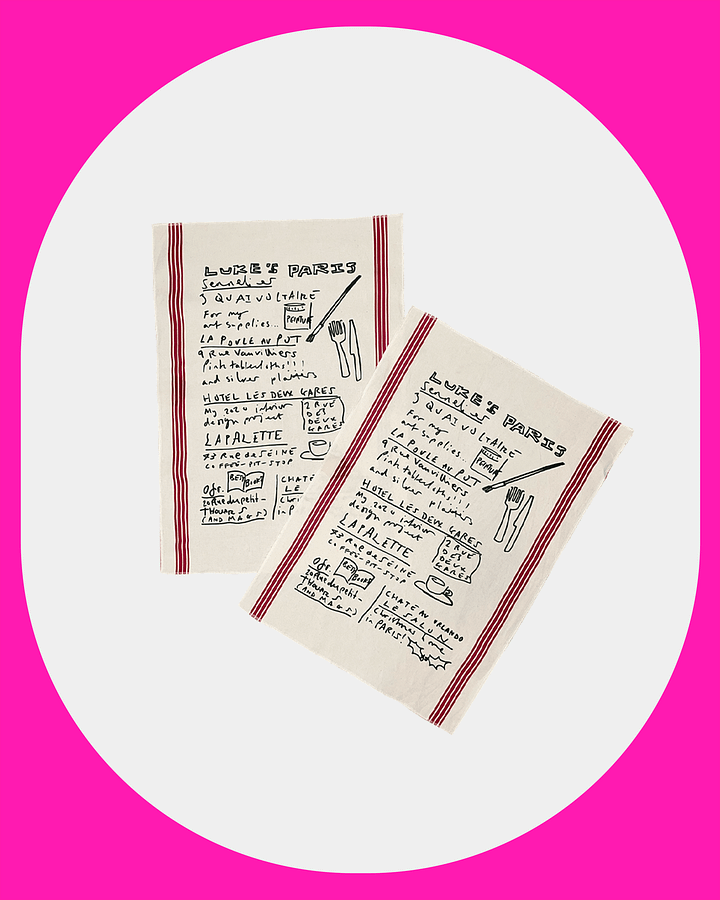 LUKE'S PARIS
Sennelier
3 QUAI VOLTAIRE
For my
art supplies...
PEINTURE
LA POULE AU POT
9 Rue Vauvilliers
Pink tablecloths!!!
and silver platters
HOTEL LES DEUX GARES
My 2020 interior
design project
2 RUE
DES
DEUX
GARES
LA PALETTE
43 Rue de SEINE
COFFEE-PIT-STOP
Ofr.
20 Rue du petit-
THOUARS
(AND MAGS)
CHATE
LE
in P
LUKE'S PARIS
Sennelier
3 QUAI VOLTAIRE
For my
art supplies.
PEINTURE
LA POULE AU POT
9 Rue Vauvilliers
Pink tablecloths!!!
and silver platters
HOTEL LES DEUX GARES
My 2020 interior
design project
2 RUE
DES
DEUX
GARES
LA PALETTE
43 Rue de SEINE
COFFEE-PIT-STOP
Ofr.
20 Rue du petit-
THOUARS
(AND MAGS)
CHATEAU ORLANDO
LE SALON
Christmas
in PARIS!